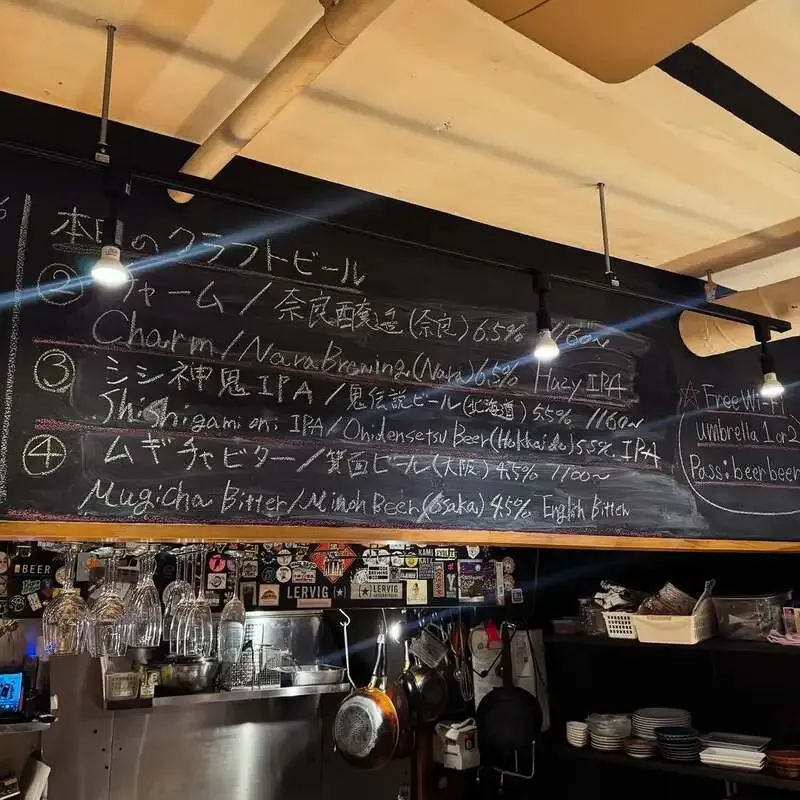 本日のクラフトビール
② チャーム/奈良醸造(奈良) 6.5% 1160~
Charm/Nara Brewing(Nara) 6.5% Hazy IPA
③ シシ神鬼IPA/鬼伝説ビール(北海道) 5.5% 1160~
Shishigami oni IPA/Onidensetsu Beer(Hokkaido) 5.5% IPA
④ ムギチャビター/箕面ビール(大阪) 4.5% 1100~
Mugicha Bitter/Minoh Beer(Osaka) 4.5% English Bitter
☆Free Wi-Fi
umbrella 1 or 2
Pass:beerbeer
BEER
LERVIG
LERVIG